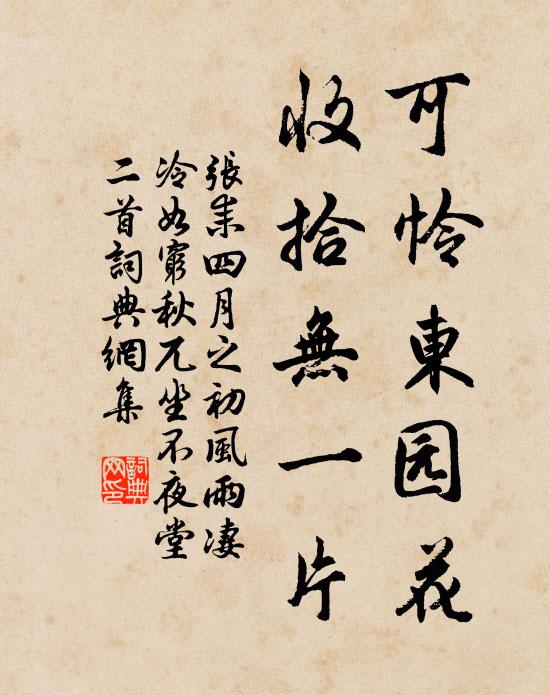 可怜東园花
收拾無一片
張耒四月之初風雨凄
冷如窮秋兀坐不夜堂
二首詞典網集
詞典
网印